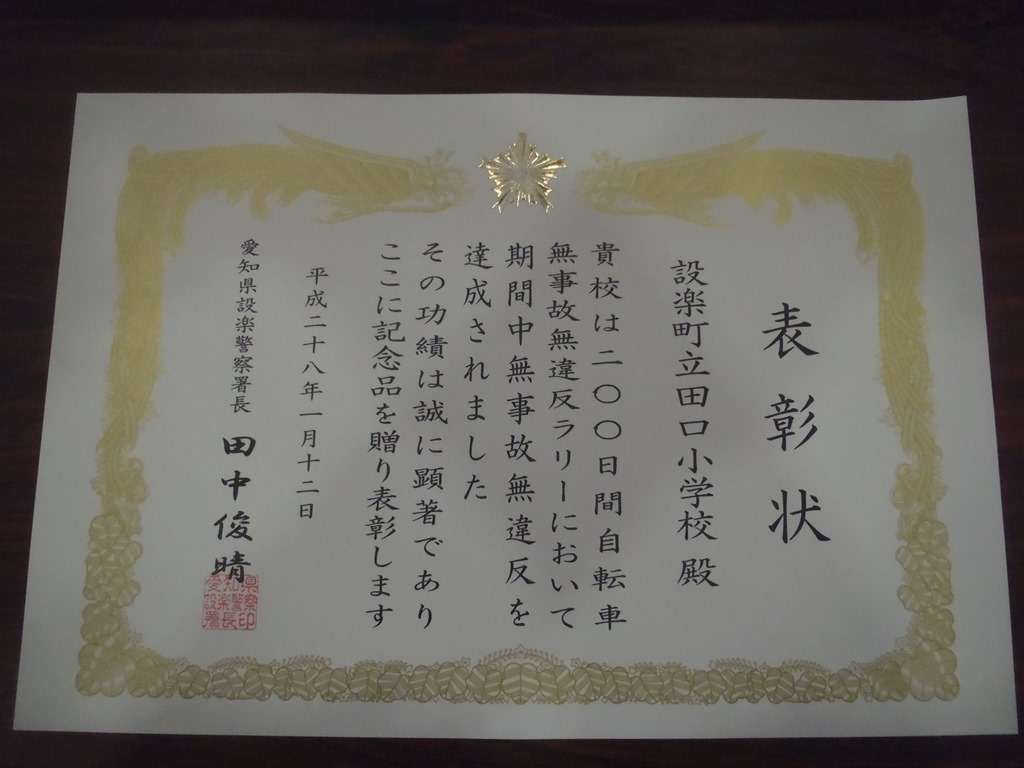 表彰状
設楽町立田口小学校 殿
貴校は二〇〇日間自転車
無事故無違反ラリーにおいて
期間中無事故無違反を
達成されました
その功績は誠に顕著であり
ここに記念品を贈り表彰します
平成二十八年一月十二日
愛知県設楽警察署長 田中俊晴